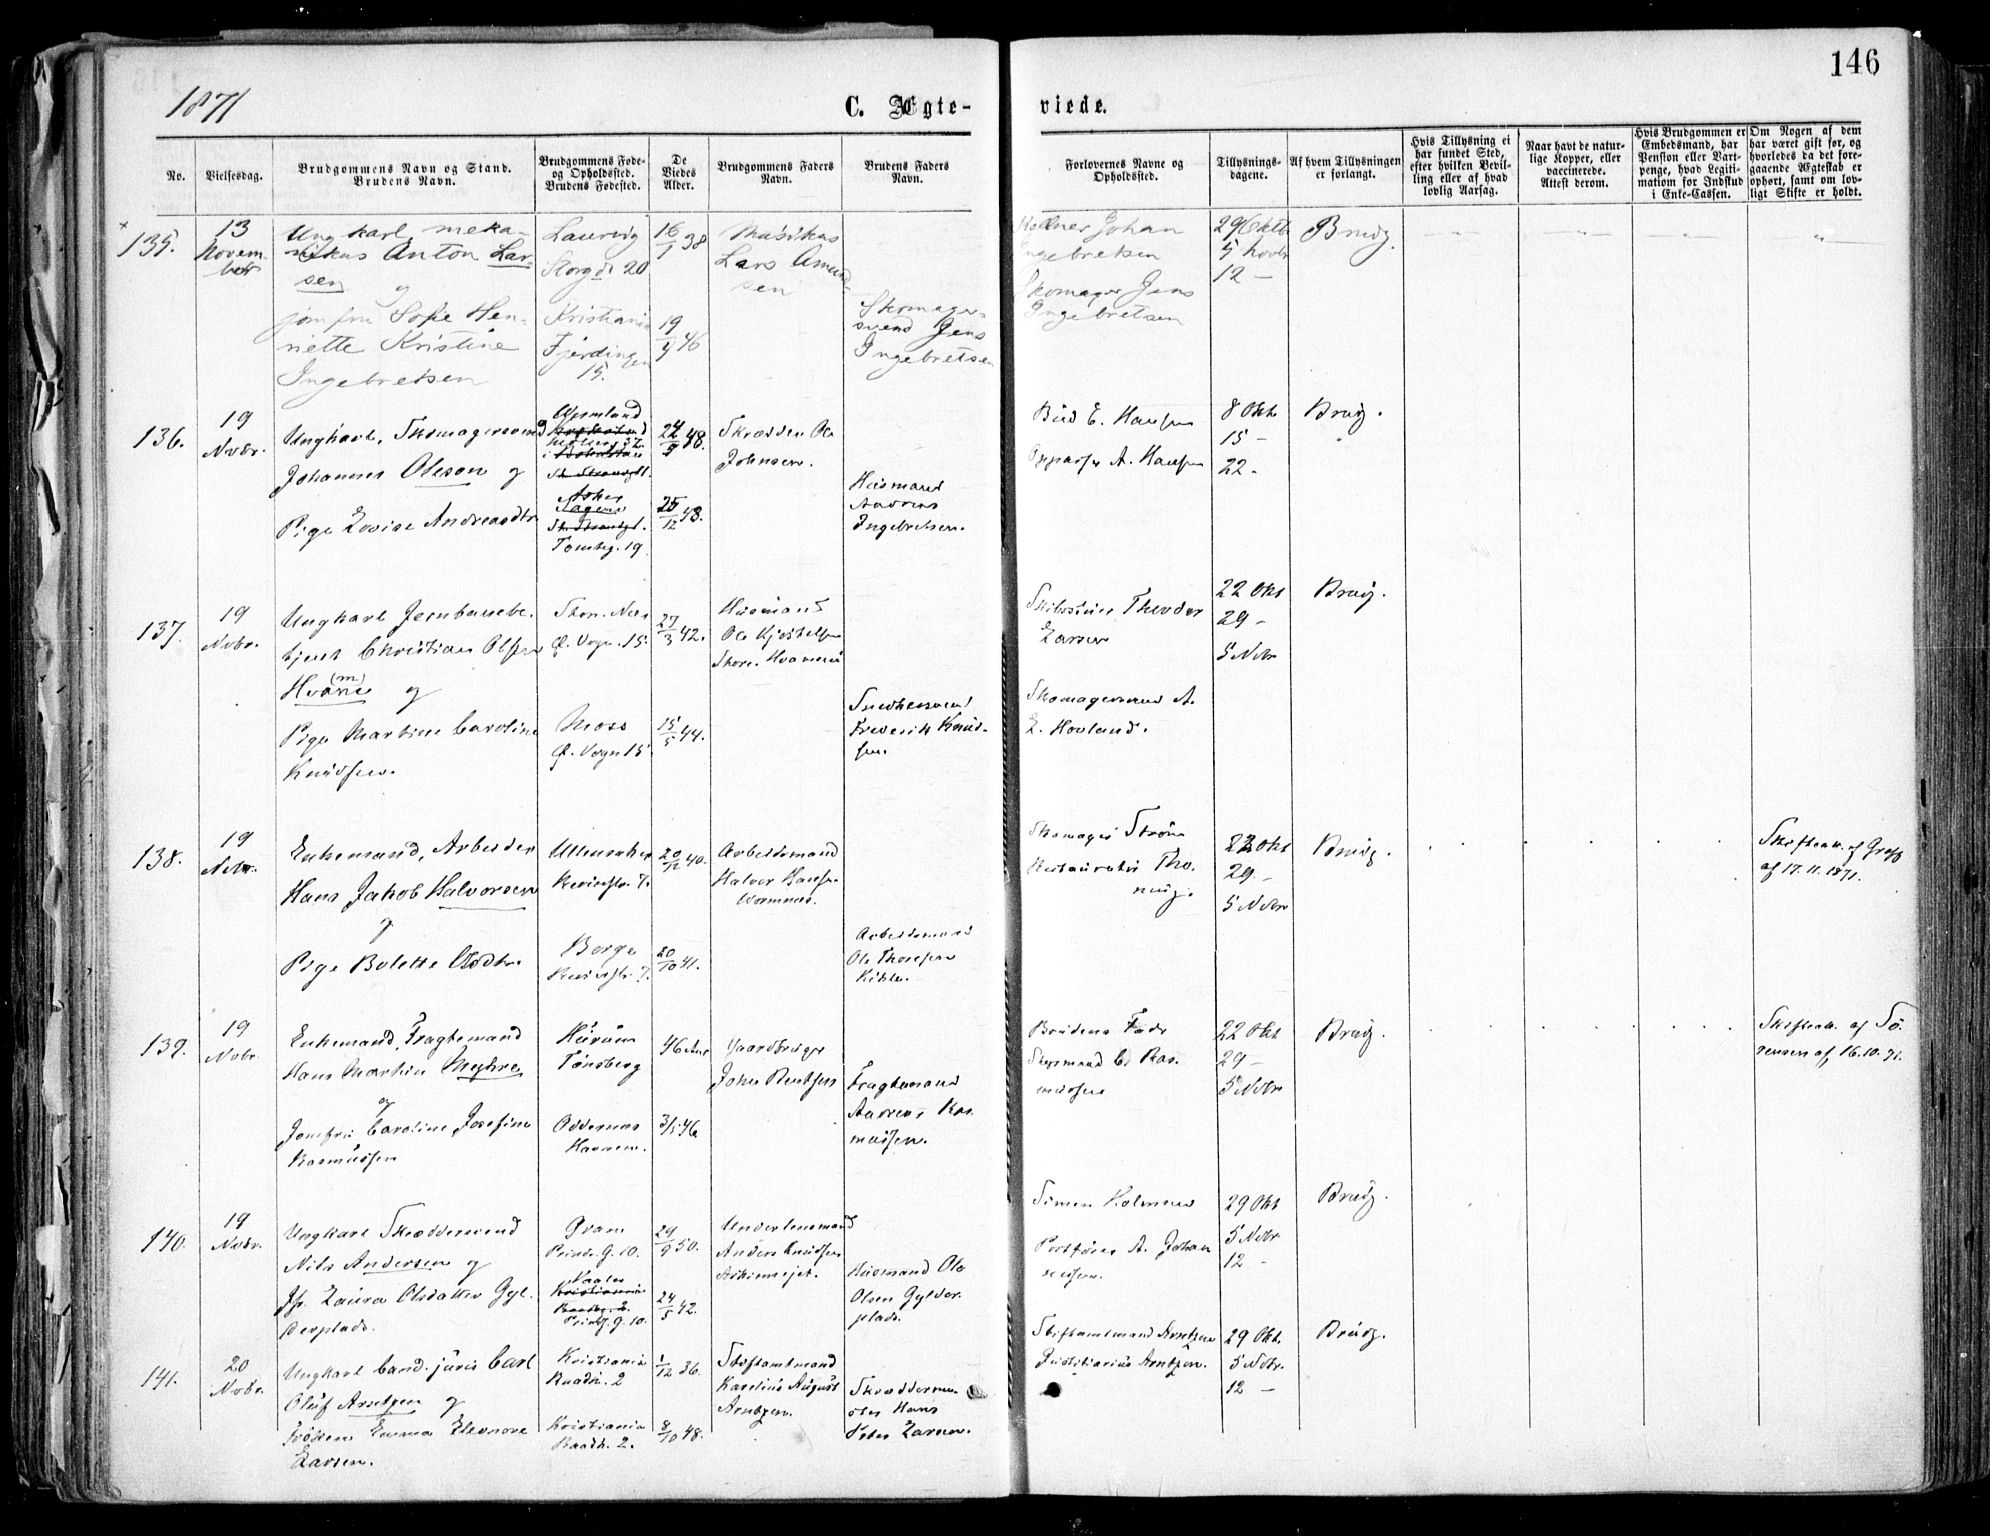 146
1871
C. Ægte-
viede.
No.
Vielsesdag.
Brudgommens Navn og Stand.
Brudens Navn.
Brudgommens Føde-
og Opholdssted.
Brudens Fødested.
De
Viedes
Alder.
Brudgommens Faders
Navn.
Brudens Faders
Navn.
Forlovernes Navne og
Opholdssted.
Tillysnings-
dagene.
Af hvem Tillysningen
er forlangt.
Hvis Tillysning ei
har fundet Sted,
efter hvilken Bevil-
ling eller af hvad
lovlig Aarsag.
Naar havt de natur-
lige Kopper, eller
vaccinerede.
Attest derom.
Hvis Brudgommen er
Embedsmand, har
Pension eller Vart-
penge, hvad Legiti-
mation for Indskud
i Enke-Cassen.
Om Nogen af dem
har været gift før, og
hvorledes da det fore-
gaaende Ægteskab er
ophørt, samt om lov-
ligt Skifte er holdt.
135.
13
Novem-
ber
Ungkarl, meka-
nikus Anton Lar-
sen og
jomfru Sofie Hen-
riette Kristine
Ingebretsen
Laurvig
Storgd 20
Kristiania
Fjerdingen
15.
16/7 38
19/9 46
Musikus
Lars Amund-
sen
Skomager-
svend Jens
Ingebretsen
Johan
Ingebretsen
Skomager Jens
Ingebretsen
29 Oktb
5 Novbr
12 —
Brudg.
136.
19
Novbr.
Ungkarl, Skomagersvend
Johannes Oleson og
Pige Lovise Andreasdtr
Wermland
Asker
Tomteg. 19.
22/9 48.
25/12 48.
Skrædder Ole
Johnsen.
Husmand
Andreas
Ingebretsen.
Bud E. Hansen
A. Hansen
8 Okt
15 —
22 -
Brudg.
137.
19
Nvbr.
Ungkarl Jernbanebe-
tjent Christian Olsen
Hvame (m) og
Pige Martine Caroline
Knudsen.
Ø. Vogn. 15.
Moss
Ø. Vogn 15.
27/3 42.
15/5 44.
Husmand
Ole Kjostelsen
Frederik Knud-
sen.
Theodor
Larsen
Skomagersvend A.
E. Hovland.
22 Okt
29 -
5 Nvbr
Brudg.
138.
19
Nvbr.
Enkemand, Arbeider
Hans Jakob Halvorsen
og
Pige Bolette Olsdtr.
Ullensaker
Borge
20/12 40.
20/10 41.
Arbeidsmand
Halvor Hansen
Arbeidsmand
Ole Thoresen
Skomager Strøm
Restauratør Tho-
22 Okt
29 -
5 Nvbr
Brudg.
Skifteatt. af Greff
af 17.11.1871.
139.
19
Nvbr.
Enkemand, Fragtemand
Hans Martin Myhre
og
Jomfru Caroline Josefine
Rasmussen
Hurum
Tønsberg
Oddernes
Havnen.
46 Aar
3/5 46.
Gaardbruger
Johan Berntsen
Fragtemand
Andreas Ras-
mussen.
Brudens Fader
Styrmand C. Ras-
mussen
22 Okt
29 —
5 Nvbr
Brudg.
Skifteatt. af Sø-
rensen af 16.10.71.
140.
19
Nvbr.
Ungkarl Skræddersvend
Nils Andersen og
Jfr. Laura Olsdatter Gyl-
derplads.
Gran
Prinds. G. 10.
Kristiania
Prindsg. G. 10.
29/9 50.
24/5 42.
Underlensmand
Anders Knudsen
Husmand Ole
Olsen Gylder-
plads.
Simen Holmsen
Postfører A. Johan-
nessen.
29 Okt
5 Nvbr
12 -
Brudg.
141.
20
Nvbr.
Ungkarl Cand. juris Carl
Oluf Arntzen og
Frøken Emma Eleonore
Larsen.
Kristiania
Raadh. 2
Kristiania
Raadh. 2.
1/12 36.
8/10 48.
Stiftamtmand
Karelius August
Arntzen.
Skrædderme-
ster Hans
Peter Larsen.
Stiftamtmand Arntzen
Justitiarius Arntzen.
29 Okt.
5 Nvbr.
12 —
Brudg.